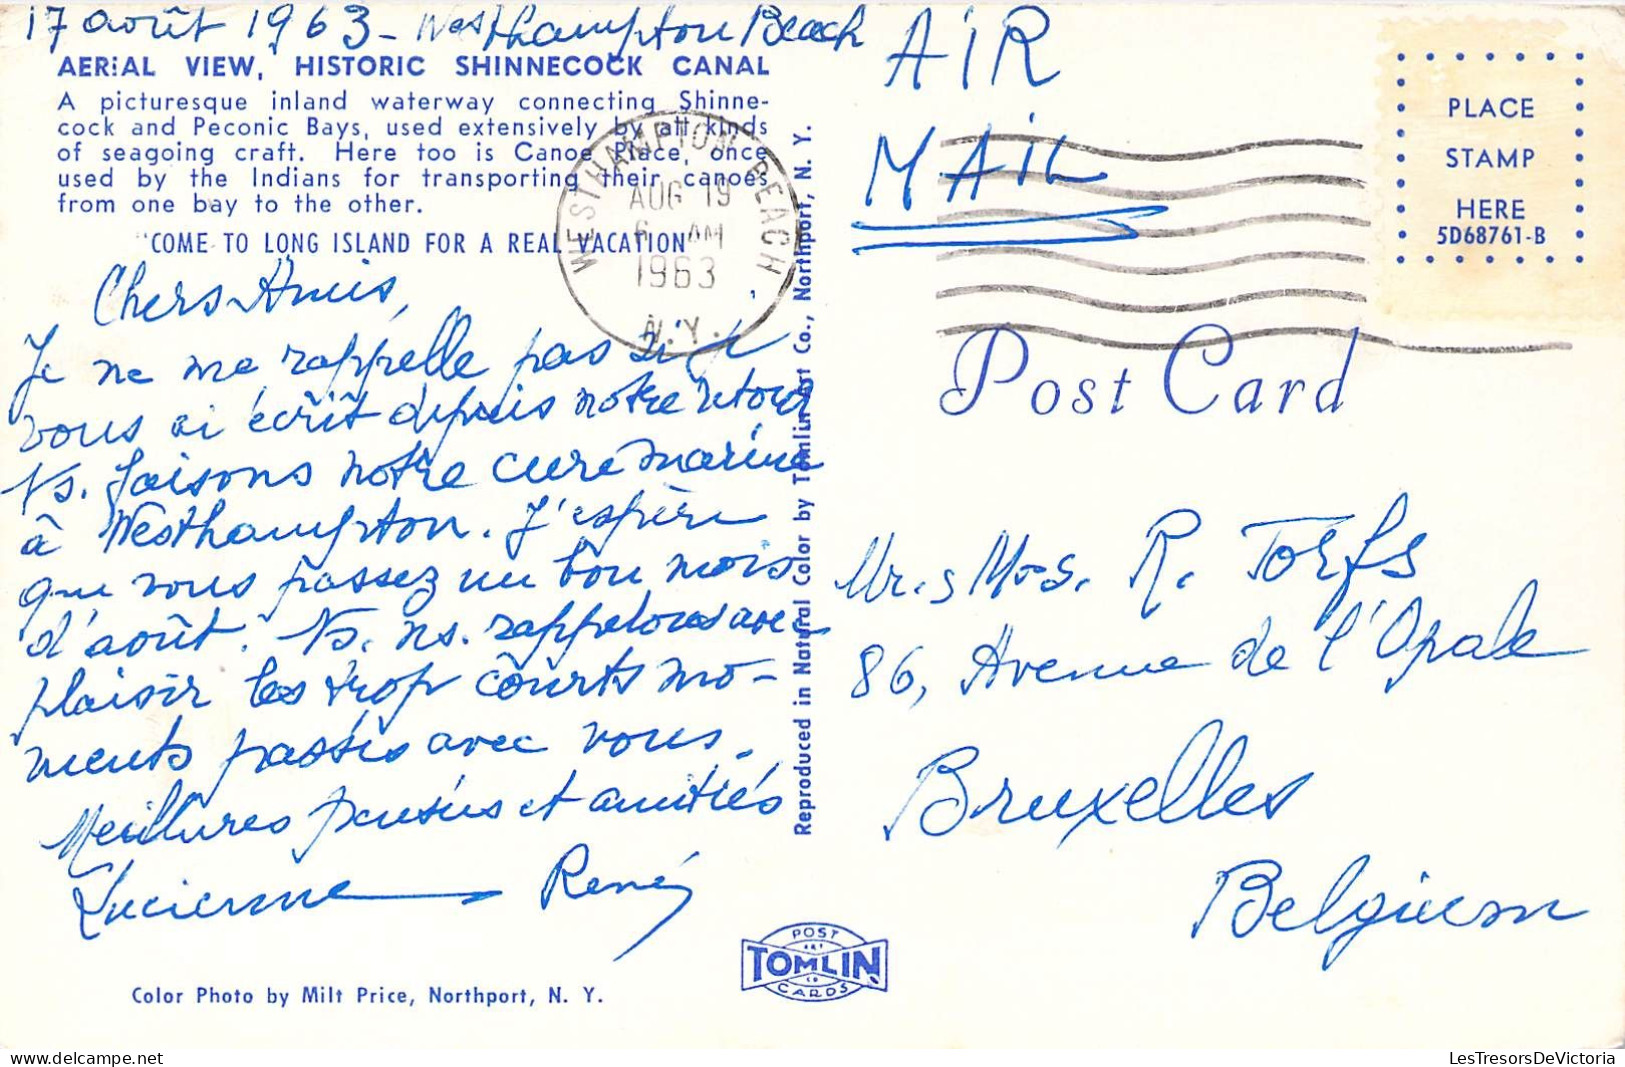 17 août 1963 - Westhampton Beach
AERIAL VIEW, HISTORIC SHINNECOCK CANAL
A picturesque inland waterway connecting Shinne-
cock and Peconic Bays, used extensively by all kinds
of seagoing craft. Here too is Canoe Place, once
used by the Indians for transporting their canoes
from one bay to the other.
"COME TO LONG ISLAND FOR A REAL VACATION"
Chers Amis,
Je ne me rappelle pas si je
vous ai écrit depuis notre retour
Ns. faisons notre cure marine
à Westhampton. J'espère
que vous passez un bon mois
d'août. Ns. ns. rappelons avec
plaisir les trop courts mo-
ments passés avec vous.
Meilleures pensées et amitiés
Lucienne René
Color Photo by Milt Price, Northport, N. Y.
WESTHAMPTON BEACH
AUG 19
6 AM
1963
N.Y.
Reproduced in Natural Color by Tomlin Art Co., Northport, N. Y.
POST
ART
TOMLIN
CO
CARDS
AIR
MAIL
PLACE
STAMP
HERE
5D68761-B
Post Card
Mr. & Mrs. R. Torfs
86, Avenue de l'Opale
Bruxelles
Belgium
www.delcampe.net
LesTresorsDeVictoria